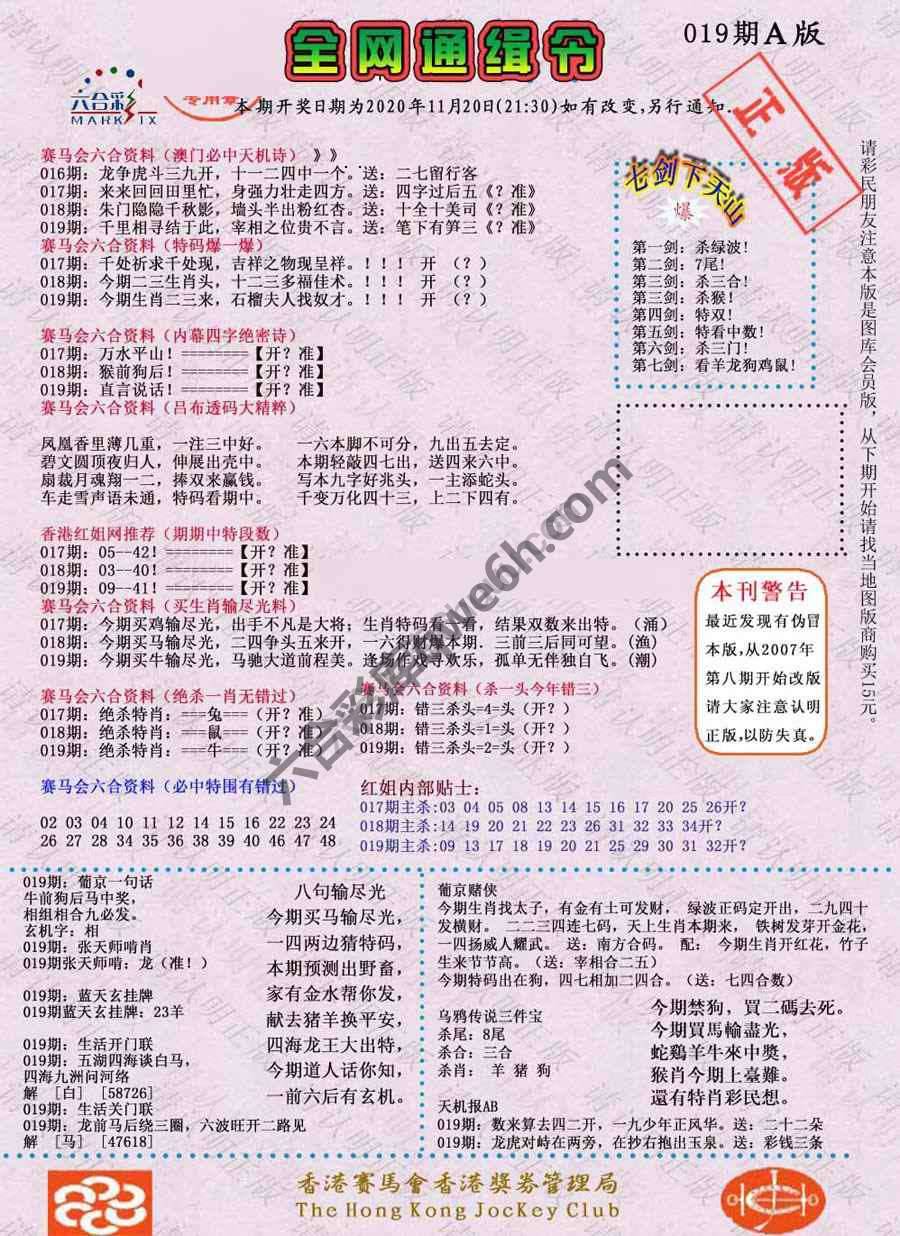 全网通缉令
019期A版
六合彩
MARK SIX
专用章
本期开奖日期为2020年11月20日(21:30)如有改变,另行通知.
正版
赛马会六合资料（澳门必中天机诗）》》
016期: 龙争虎斗三九开，十一二四中一个。送: 二七留行客
017期: 来来回回田里忙，身强力壮走四方。送: 四字过后五《？准》
018期: 朱门隐隐千秋影，墙头半出粉红杏。送: 十全十美司《？准》
019期: 千里相寻结于此，宰相之位贵不言。送: 笔下有笋三《？准》
赛马会六合资料（特码爆一爆）
017期: 千处祈求千处现，吉祥之物现呈祥。！！！ 开 （？）
018期: 今期二三生肖头，十二三多福佳术。！！！ 开 （？）
019期: 今期生肖二三来，石榴夫人找奴才。！！！ 开 （？）
赛马会六合资料（内幕四字绝密诗）
017期: 万水平山！========【开？准】
018期: 猴前狗后！========【开？准】
019期: 直言说话！========【开？准】
赛马会六合资料（吕布透码大精粹）
凤凰香里薄几重，一注三中好。 一六本脚不可分，九出五去定。
碧文圆顶夜归人，伸展出壳中。 本期轻敲四七出，送四来六中。
扇裁月魂翔一二，捧双来赢钱。 写本九字好兆头，一主添蛇头。
车走雪声语未通，特码看期中。 千变万化四十三，上二下四有。
香港红姐网推荐（期期中特段数）
017期: 05--42！========【开？准】
018期: 03--40！========【开？准】
019期: 09--41！========【开？准】
赛马会六合资料（买生肖输尽光料）
017期: 今期买鸡输尽光，出手不凡是大将；生肖特码看一看，结果双数来出特。（涌）
018期: 今期买马输尽光，二四争头五来开，一六得财爆本期．三前三后同可望。(渔)
019期: 今期买牛输尽光，马驰大道前程美。逢场作戏寻欢乐，孤单无伴独自飞。(潮)
赛马会六合资料（绝杀一肖无错过）
017期: 绝杀特肖: ===兔===（开？准）
018期: 绝杀特肖: ===鼠===（开？准）
019期: 绝杀特肖: ===牛===（开？准）
赛马会六合资料（杀一头今年错三）
017期: 错三杀头=4=头（开？）
018期: 错三杀头=1=头（开？）
019期: 错三杀头=2=头（开？）
赛马会六合资料（必中特围有错过）
02 03 04 10 11 12 14 15 16 22 23 24
26 27 28 34 35 36 38 39 40 46 47 48
红姐内部贴士:
017期主杀:03 04 05 08 13 14 15 16 17 20 25 26开?
018期主杀:14 19 20 21 22 23 26 31 32 33 34开?
019期主杀:09 13 17 18 19 20 21 25 29 30 31 32开?
七剑下天山
爆
第一剑: 杀绿波!
第二剑: 7尾!
第三剑: 杀三合!
第三剑: 杀猴!
第四剑: 特双!
第五剑: 特看中数!
第六剑: 杀三门!
第七剑: 看羊龙狗鸡鼠!
请彩民朋友注意本版是图库会员版，从下期开始请找当地图版商购买15元。
本刊警告
最近发现有伪冒
本版,从2007年
第八期开始改版
请大家注意认明
正版,以防失真。
六合彩库 we6h.com
019期: 葡京一句话
牛前狗后马中奖，
相组相合九必发。
玄机字: 相
019期: 张天师啃肖
019期张天师啃: 龙（准！）
019期: 蓝天玄挂牌
019期蓝天玄挂牌: 23羊
019期: 生活开门联
019期: 五湖四海谈白马，
四海九洲问河络
解 [白] [58726]
019期: 生活关门联
019期: 龙前马后绕三圈，六波旺开二路见
解 [马] [47618]
八句输尽光
今期买马输尽光，
一四两边猜特码，
本期预测出野畜，
家有金水帮你发，
献去猪羊换平安，
四海龙王大出特，
今期道人话你知，
一前六后有玄机。
葡京赌侠
今期生肖找太子，有金有土可发财， 绿波正码定开出，二九四十
发横财。 二二三四连七码，天上生肖本期来， 铁树发芽开金花，
一四扬威人耀武。 送: 南方合码。 配: 今期生肖开红花，竹子
生来节节高。（送: 宰相合二五）
今期特码出在狗，四七相加二四合。（送: 七四合数）
乌鸦传说三件宝
杀尾: 8尾
杀合: 三合
杀肖: 羊 猪 狗
今期禁狗，買二碼去死。
今期買馬輸盡光，
蛇鷄羊牛來中獎，
猴肖今期上臺難。
還有特肖彩民想。
天机报AB
019期: 数来算去四二开，一九少年正风华。送: 二十二朵
019期: 龙虎对峙在两旁，在抄右抱出玉泉。送: 彩钱三条
香港賽馬會香港獎券管理局
The Hong Kong JocKey Club